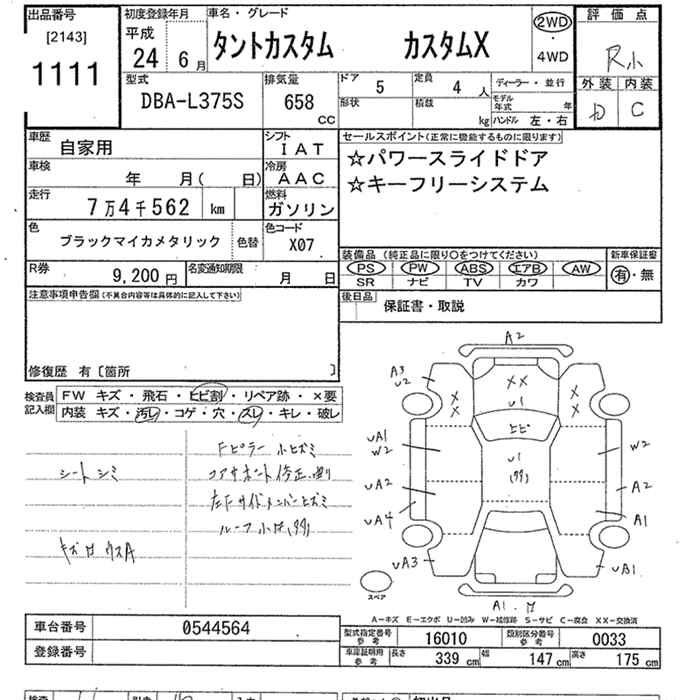 出品番号
[2143]
1111
初度登録年月
平成
24 6月
車名・グレード
タントカスタム カスタムX
2WD
・
4WD
評価点
R小
外装 内装
D C
型式
DBA-L375S
排気量
658
cc
ドア 5
定員 4人
形状
積載 kg
ディーラー・並行
モデル年式 年
ハンドル 左・右
車歴
自家用
シフト
IAT
車検
年 月( 日)
冷房
AAC
走行
7万4千562 km
燃料
ガソリン
色
ブラックマイカメタリック
色替
色コード
X07
R券
9,200円
名変通知期限
月 日
セールスポイント(正常に機能するものに限ります)
☆パワースライドドア
☆キーフリーシステム
装備品(純正品に限り○をつけてください)
PS PW ABS エアB AW
SR ナビ TV カワ
新車保証書
有・無
後日品
保証書・取説
注意事項申告欄(不具合内容等は具体的に記入して下さい)
修復歴 有〔箇所 〕
検査員
記入欄
FW キズ・飛石・ヒビ割・リペア跡・×要
内装 キズ・汚レ・コゲ・穴・スレ・キレ・破レ
シートシミ
Fピラー小ヒズミ
コアサポート修正、曲り
左Fサイドメンバーヒズミ
A2
A3
U2
XX
U1
X
X
X
X
ヒビ
UA1
W2
U1
W2
UA2
A2
UA4
A1
UA3
UB1
A1.
スペア
A−キズ E−エクボ U−凹み W−補修跡 S−サビ C−腐食 XX−交換済
車台番号
0544564
登録番号
型式指定番号
参考
16010
類別区分番号
参考
0033
車庫証明用
参考
長さ 339cm
幅 147cm
高さ 175cm